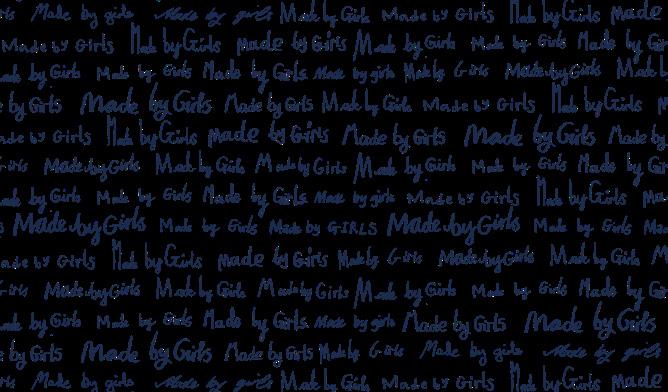 Girls Made by girls Made by girls Made by Girls Made by Girls Made by Girls made
Made by Girls Made by Girls made by Girls Made by Girls Made by Girls Made by
by Girls Made by Girls Made by Girls Made by girls Made by Girls Made by Girls Made
by Girls Made by Girls Made by Girls Made by Girls Made by Girls Made by Girls
made by Girls Made by Girls made by Girls Made by Girls Made by Girls Made by
Girls Made by Girls Made by Girls Made by Girls Made by Girls Made by Girls Made by
by Girls Made by Girls Made by Girls Made by girls Made by Girls Made by Girls
Made by Girls Made by Girls Made by GIRLS Made by Girls Made by Girls Made
made by Girls Made by Girls made by Girls Made by Girls Made by Girls Made by Girls
Girls Made by Girls Made by Girls Made by Girls Made by Girls Made by Girls Made by
by Girls Made by Girls Made by Girls Made by girls Made by Girls Made by Girls
by Girls Made by Girls Made by Girls Made by Girls Made by girls Made by girls
Girls Made by girls Made by girls Made by Girls Made by Girls Made by Girls made